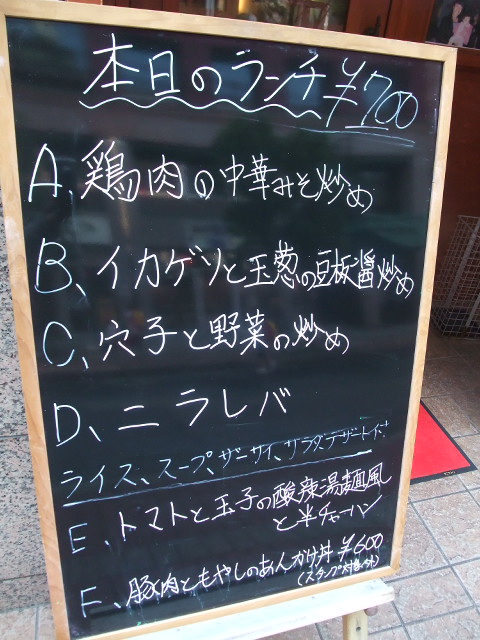 本日のランチ ¥700
A、鶏肉の中華みそ炒め
B、イカゲソと玉葱の豆板醤炒め
C、穴子と野菜の炒め
D、ニラレバ
ライス、スープ、ザーサイ、サラダ、デザート付!
E、トマトと玉子の酸辣湯麺風
と半チャーハン
F、豚肉ともやしのあんかけ丼 ¥600
(スタンプ対象外)